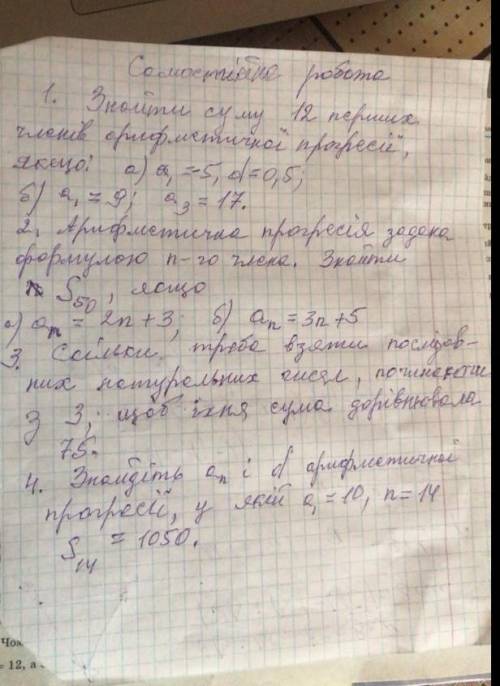 Самостійна робота
1. Знайти суму 12 перших
членів арифметичної прогресії,
якщо: а) a₁ = -5, d = 0,5;
б) a₁ = 9; a₃ = 17.
2. Арифметична прогресія задана
формулою n-го члена. Знайти
S₅₀, якщо
а) aₙ = 2n + 3; б) aₙ = 3n + 5
3. Скільки треба взяти послідов-
них натуральних чисел, починаючи
з 3, щоб їхня сума дорівнювала
75.
4. Знайдіть aₙ і d арифметичної
прогресії, у якій a₁ = 10, n = 14
S₁₄ = 1050.
= 12, а